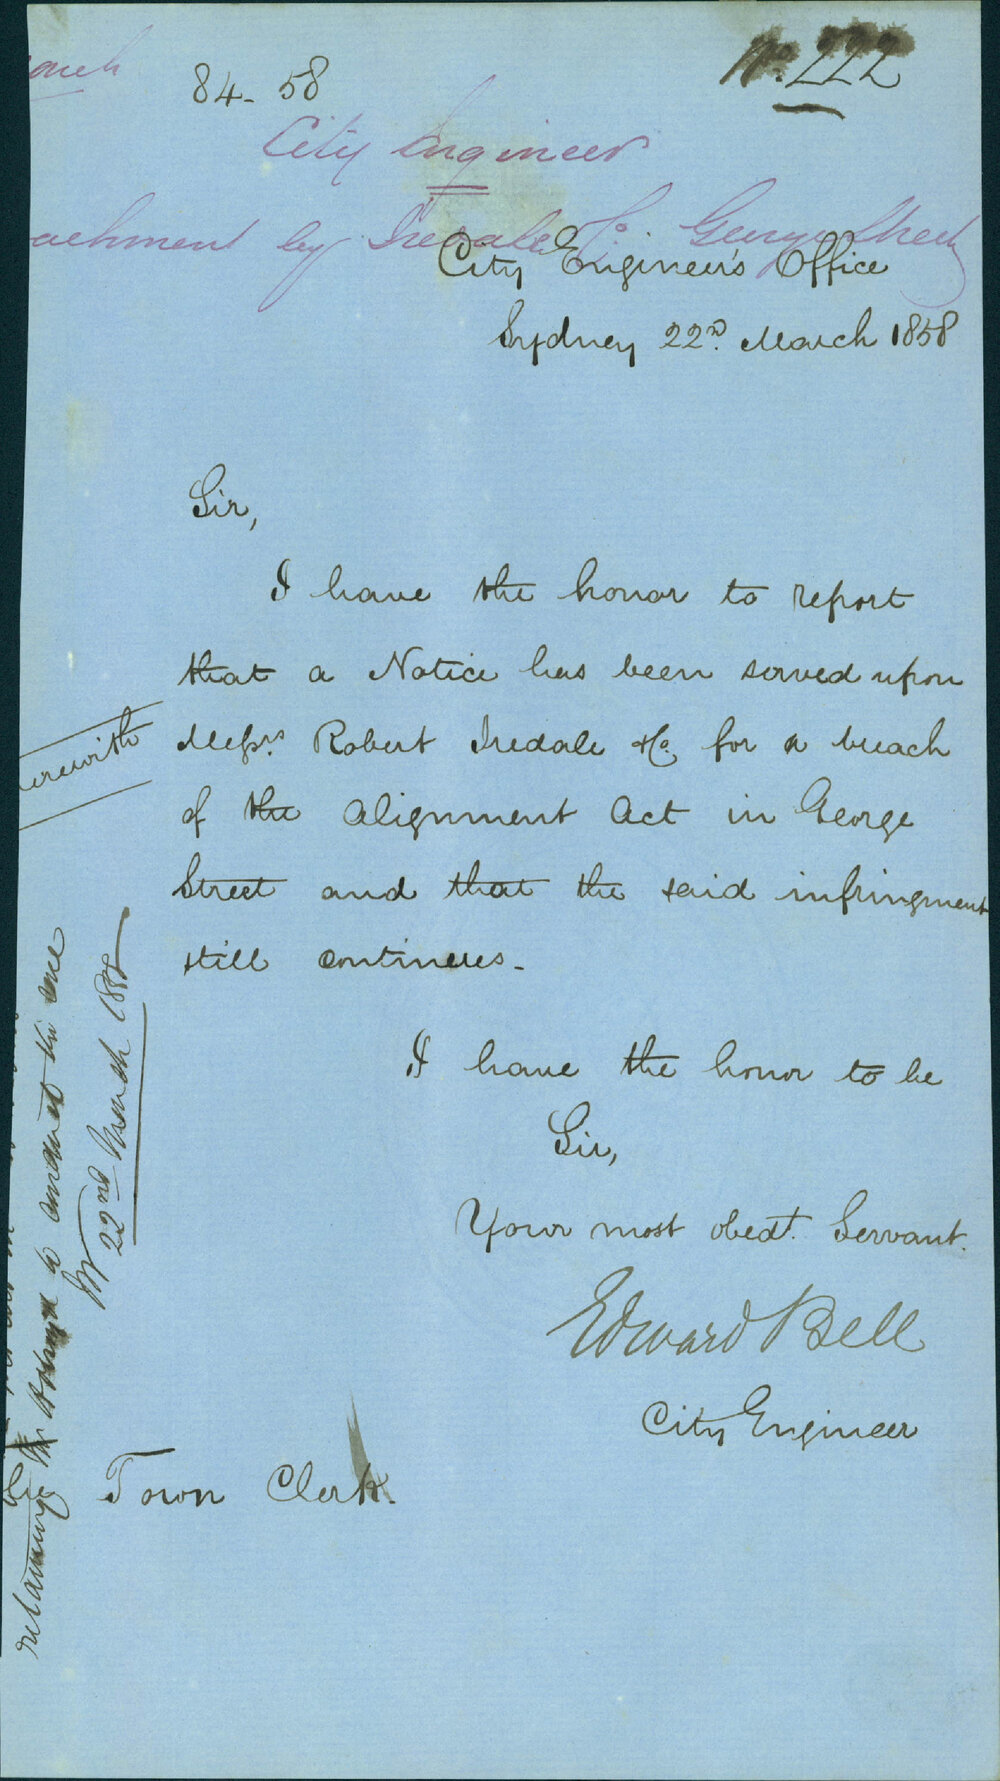 84-58
No. 222
City Engineer
achment by Iredale & Co. George Street
City Engineer's Office
Sydney 22nd. March 1858
Sir,
I have the honor to report
that a Notice has been served upon
Messrs. Robert Iredale & Co. for a breach
of the Alignment Act in George
Street and that the said infringment
still continues.
I have the honor to be
Sir,
Your most obedt. Servant.
Edward Bell
City Engineer
Town Clerk.
erewith
retaining Mr to conduct the case
22nd March 1858